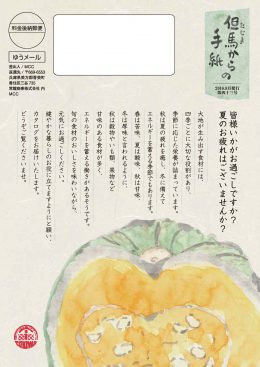 料金後納郵便
ゆうメール
差出人/MCC
返還先/〒669-6553
MCC
但馬からの
たじま
手紙
皆様いかがお過ごしですか?
夏のお疲れはございませんか?
大地が生み出す食材には、
四季ごとに大切な役割があり、
季節に応じた栄養が詰まっています。
秋は夏の疲れを癒し、冬に備えて
エネルギーを蓄える季節でもあります。
春は苦味、夏は酸味、秋は甘味、
冬は厚味と言われるように、
秋は穀物やいも類、果物など
甘味のある食材が多く、
エネルギーを蓄える働きがあるそうです。
旬の食材のおいしさを味わいながら、
元気にお過ごしください。
健やかな暮らしのお役に立てますようにと願い、
カタログをお届けいたします。
どうぞご覧くださいませ。